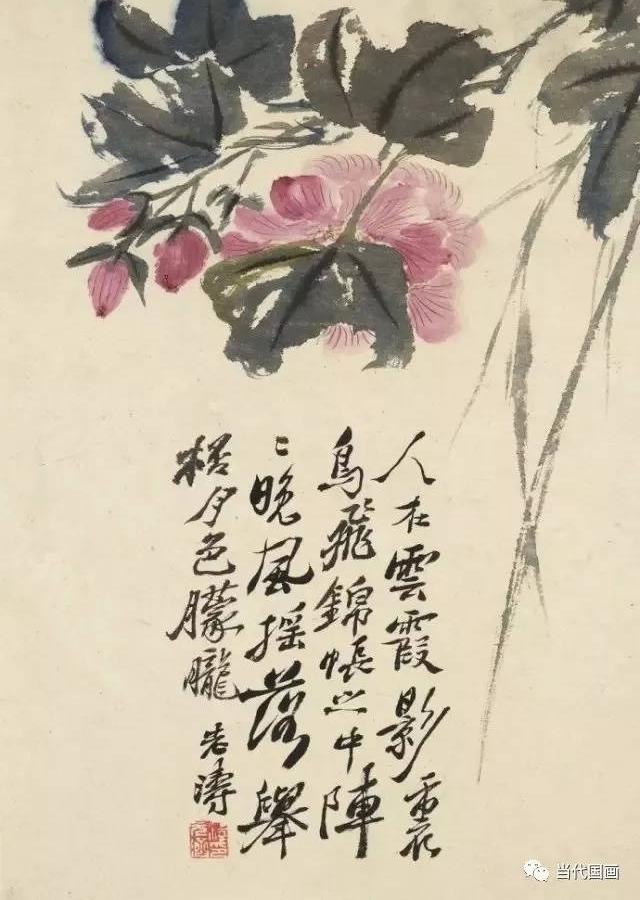 人在雲霞影裏
鳥飛錦帳之中陣
〻晚風搖落舉
桮夕色朦朧
老濤
当代国画